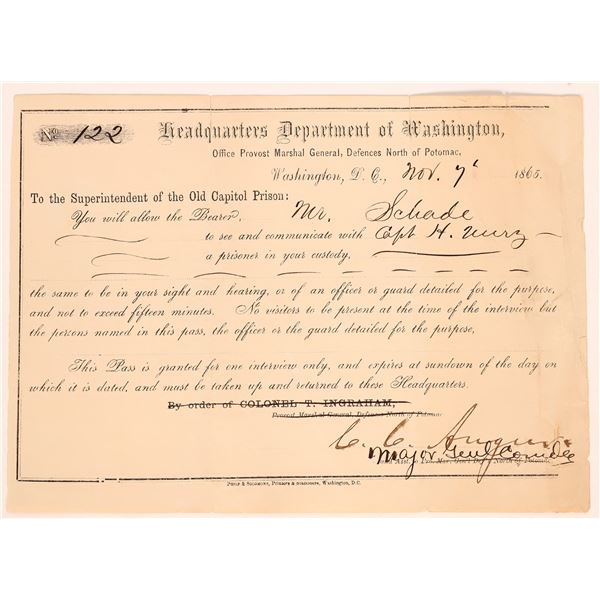 No 122
Headquarters Department of Washington,
Office Provost Marshal General, Defences North of Potomac,
Washington, D. C., Nov. 7 1865.
To the Superintendent of the Old Capitol Prison:
You will allow the Bearer, Mr. Schade
to see and communicate with Capt H.
a prisoner in your custody,
the same to be in your sight and hearing, or of an officer or guard detailed for the purpose,
and not to exceed fifteen minutes. No visitors to be present at the time of the interview but
the persons named in this pass, the officer or the guard detailed for the purpose,
This Pass is granted for one interview only, and expires at sundown of the day on
which it is dated, and must be taken up and returned to these Headquarters.
By order of COLONEL T. INGRAHAM,
Provost Marshal General, Defences North of Potomac
C. C.
Major Genl Comdg
North of Potomac.
PHILP & SOLOMONS, Washington, D.C.